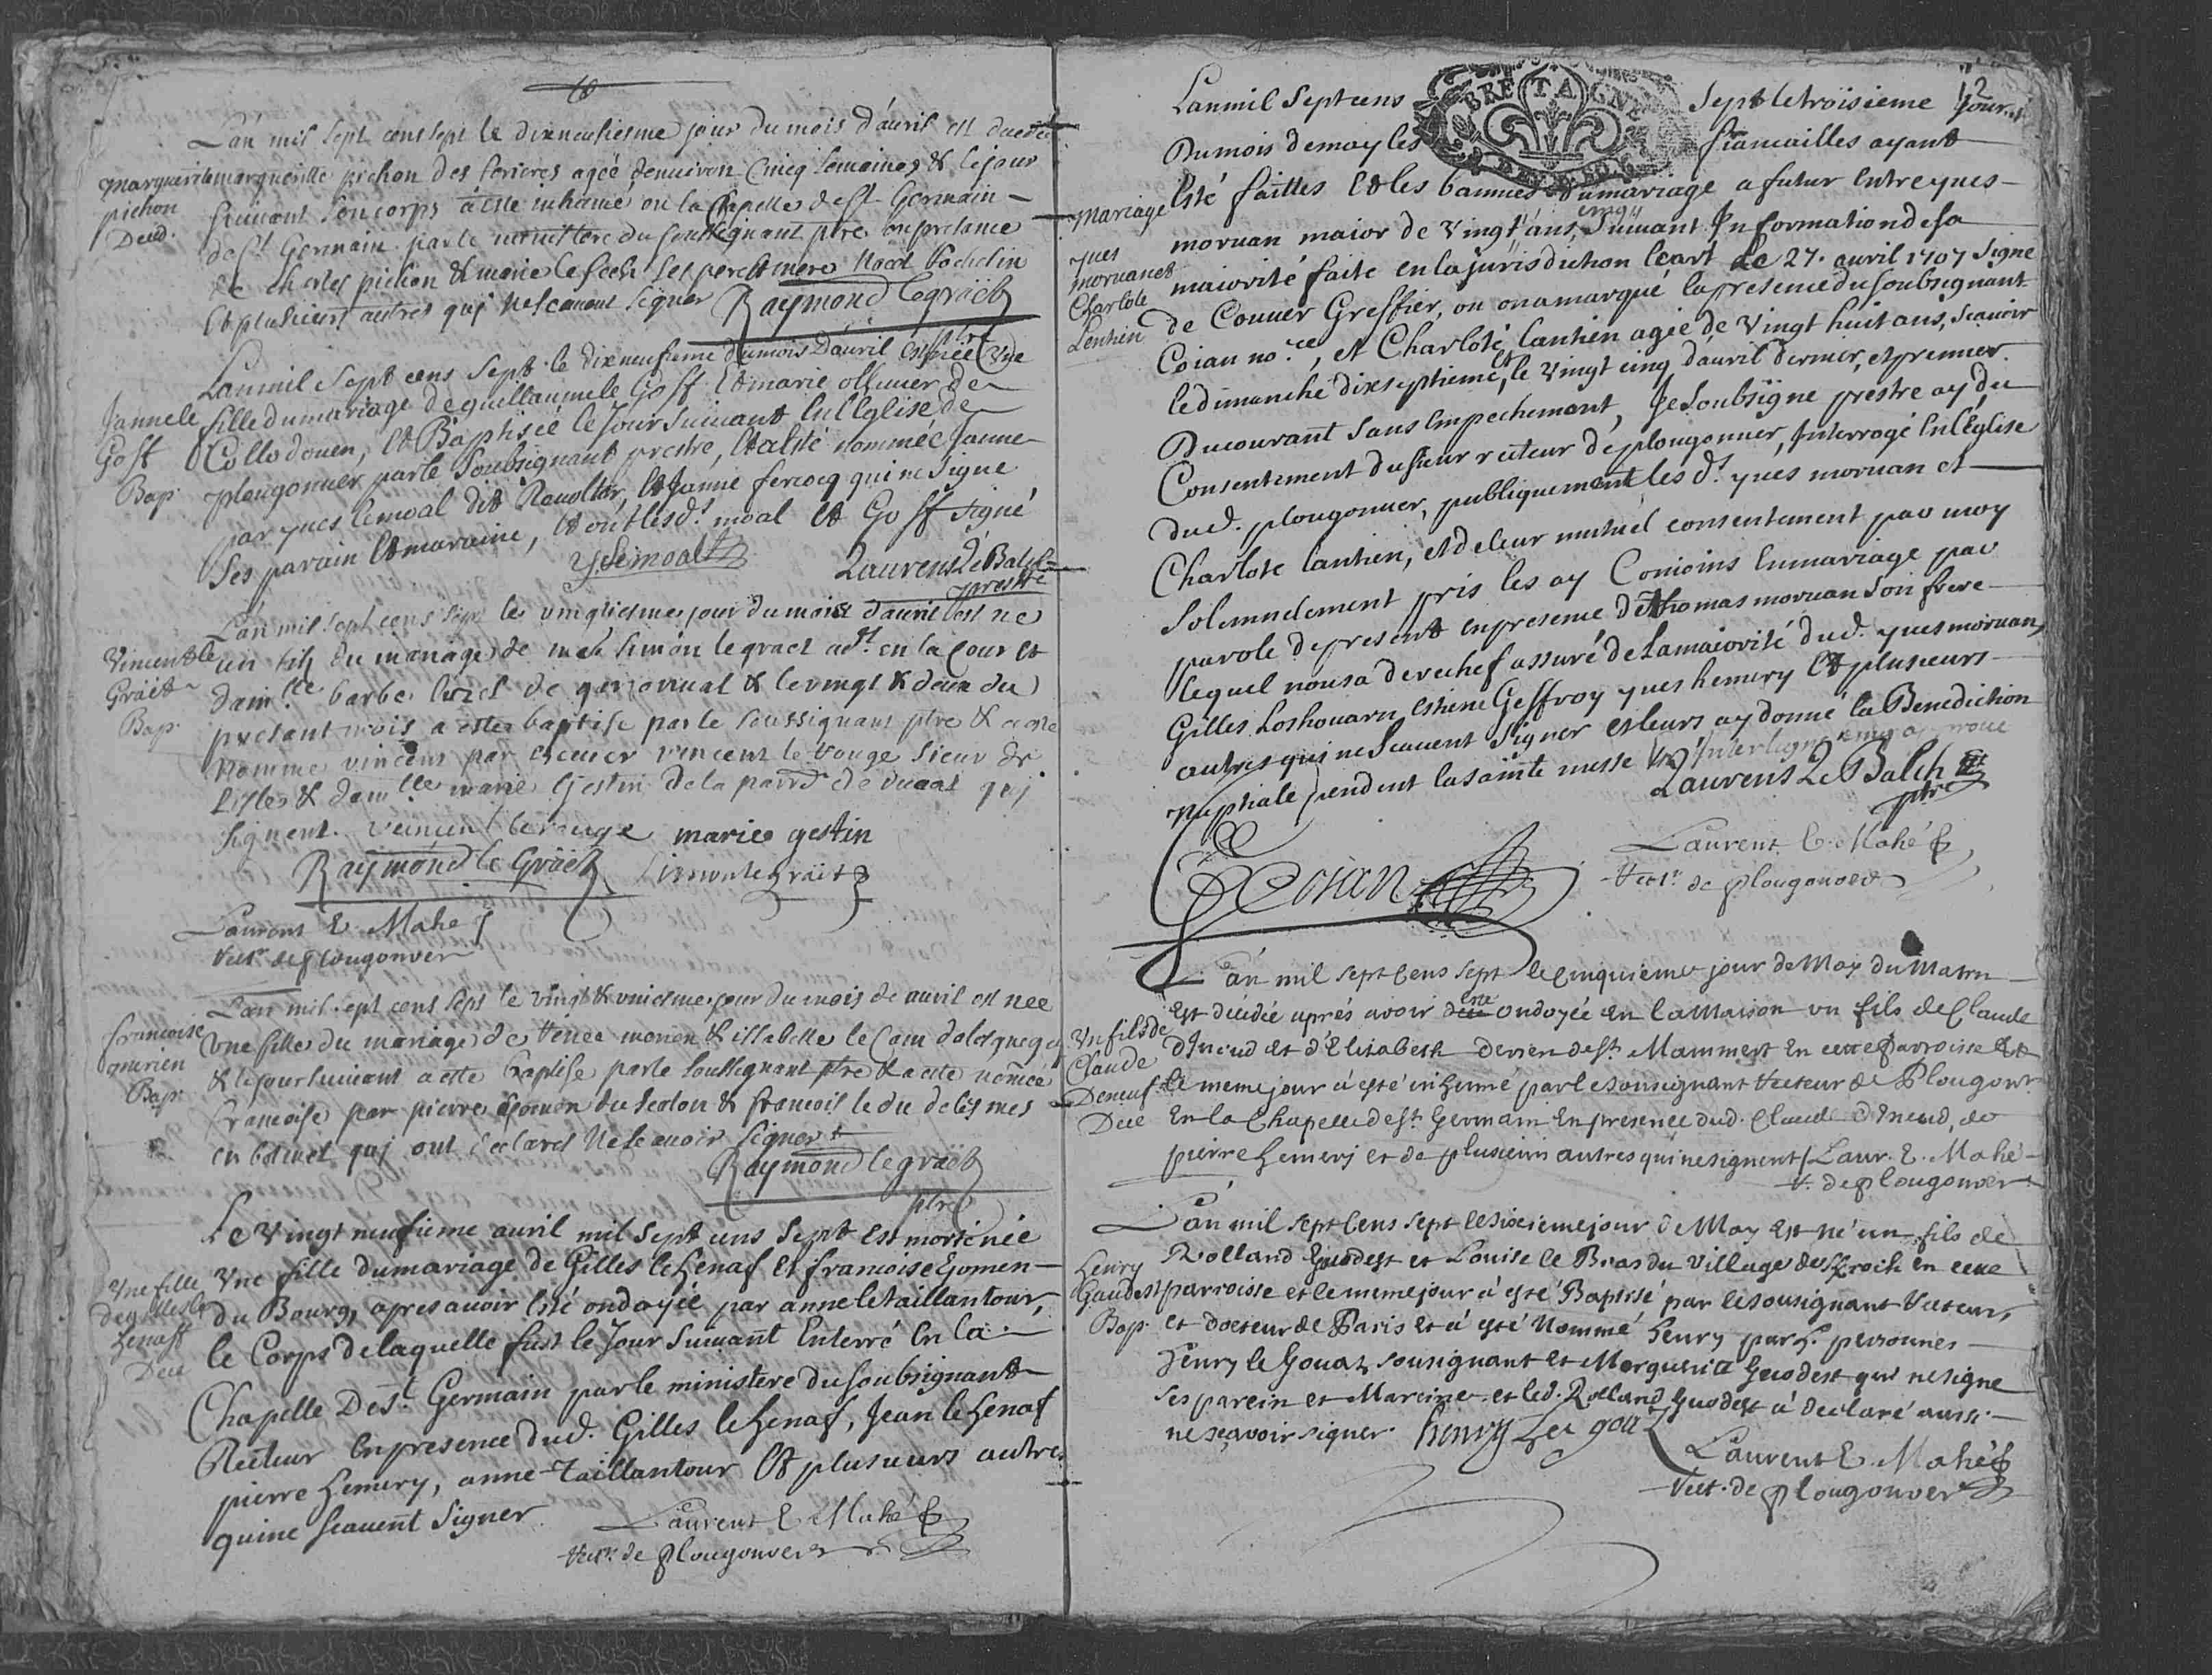 L'an mil sept cens sept le dixneufiesme jour du mois d'auril est decedée
margueritte pichon des ferieres agée denuiron Cincq semaines & le jour
Marguerite
pichon
Deced.
suiuant son corps à este inhumé en la Chapelle de st Germain
de st Germain par le ministere du soussignant ptre en presance
de Charles pichon & marie le sech ses pere et mere
Et plusieurs autres quj ne scauent signer Raymond Legräet
ptre
Lanmil Sept cens Sept le dixneufieme dumois Dauril est née Vne
fille dumariage de guillaumele Goff Et marie olliuier de
Janne le
Goff
Bap.
Collodouen, et Baptisée le Jour suiuant En l'Eglise de
plougonuer par le Soubsignant prestre, et a esté nommée Janne
par yues lemoal dit et Janne fercocq qui ne signe
ses parain et maraine, et ont lesd. moal et Goff signé
Y Lemoal Laurens Le Balch
prestre
L'an mil sept cens sept le vingtiesme jour du mois d'auril est ne
un filz du mariage de simon le graet en la Cour et
Vincent le
Gräet
Bap.
dam.lle barbe & le vingt & deux du
presant mois a este baptise par le soussignant ptre & a este
nomme vincent par vincent le rouge sieur de
& dam lle marie gestin de la parr. de quj
signent. vincent le rouge marie gestin
Raymond le Gräet Simon le gräet
Laurent L. Mahé
Rectr. de plougonver
L'an mil sept cens sept le vingt & vniesme jour du mois de auril est nee
vne fille du mariage de & issabelle le Cam
francoise
Bap.
& le jour suiuant a este baptise par le soussignant ptre & a este nomée
francoise par pierre du & francois le du
en quj ont declarez ne scauoir signer
Raymond legräet
ptre
Le Vingt neufieme auril mil Sept cens Sept est mortenée
Vne fille dumariage de Gilles le henaf et francoise Gomen
Vne fille
de gilles le
henaff
Dece
du Bourg, apres auoir esté ondoyée par anne le taillantour,
le Corps de laquelle fust le Jour Suiuant Enterré En la
Chapelle De st Germain par le ministere du soubsignant
Recteur En presence dud. Gilles le henaf, Jean le henaf
pierre hemery, anne Taillantour et plusieurs autres
quine scauent signer. Laurent L. Mahé
Rectr. de plougonver
2
Lanmil Sept cens Sept le troisieme Jour
BRETAGNE
Dumois demay les fiancailles ayant
Esté faittes et les bannies dumariage a futur Entre yues
Mariage
yues
moruan et
Charlote
Lentien
moruan maior de Vingt cinq ans, Suiuant Information de sa
maiorité faite en la jurisdiction Leart le 27. auril 1707 signé
de Couuer Greffier, ou on a marqué la presence du soubsignant
Coian no.re, et Charlote Lantien agée de Vingt huit ans, scauoir
le dimanche dixseptieme, et le Vingt cinq dauril dernier, et premier
Du courant sans Empechement, Je Soubsigné prestre ay du
Consentement du sieur recteur de plougonuer, Interrogé En l'Eglise
dud. plougonuer, publiquement les d. yues moruan et
Charlote Lantien, et de leur mutuel consentement par moy
Solemnelement pris les ay Conioins En mariage par
parole de present en presence de thomas moruan son frere
lequel nous a derechef assuré de la maiorité dud. yues moruan,
Gilles Loshouarn Estiene Geffroy yues hemery Et plusieurs
autres qui ne Scauent Signer et leurs ay donné la Benediction
nuptiale pendent la sainte messe Interligne cinq approuué
Laurens Le Balch
ptre
Coian
Laurent L. Mahé
Rectr. de plougonver
L'an mil sept cens sept le Cinquieme jour de May du Matin
est décédé après avoir esté ondoyée en la Maison un fils de Claude
Vn fils de
Claude
Deneuf
Dece
et d'Elisabeth Derrien de st. Mammert en cette Parroisse et
le meme jour a esté inhumé par le sousignant Recteur de Plougonv.
en la Chapelle de st. Germain en presence dud. Claude de
pierre hemery et de plusieurs autres qui ne signent / Laur. L. Mahé
r. de plougonver
L'an mil sept cens sept le sixieme jour de May est né un fils de
Rolland Guodest et Louise le Bras du village de en cette
Henry
Gaudest
Bap.
parroisse et le meme jour a esté Baptisé par le sousignant Recteur,
et docteur de Paris et a esté Nommé henry par h. personnes
henry le Gouaz sousignant et Marguerite Guodest qui ne signe
ses parein et Mareine et led. Rolland Guodest a declaré aussi
ne sçavoir signer. henry Le goüaz
Laurent L. Mahé
Rect. de plougonver